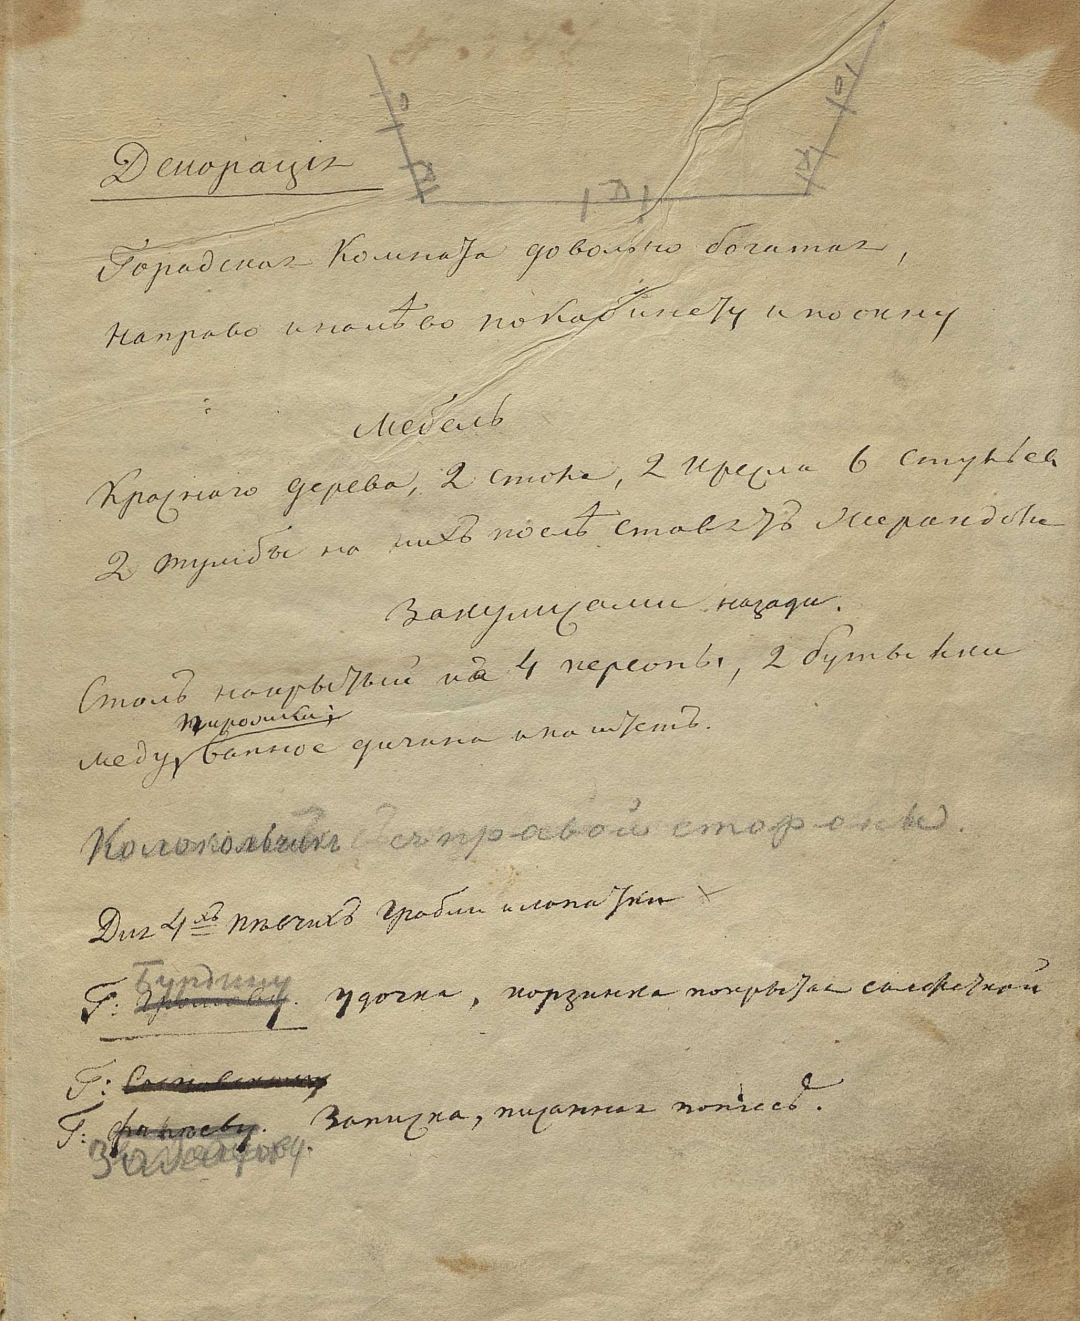 Декорація
Горадская Комната довольно богатая,
направо и налѣво по кабинету и по окну
Мебель
Краснаго дерева, 2 стола, 2 кресла 6 стульев
2 тумбы на нихъ послѣ ставятъ Жерандоли
За кулисами назади.
Столъ накрытый на 4 персоны, 2 бутылки
пирожки;
меду, дичина и паштетъ.
Колокольчик съ правой стороны.
Для 4хъ пѣвчихъ Грабли и лопатки
Бурдину
Г: удочка, корзинка покрытая салфеткой
Г:
Г: Записка, писанная